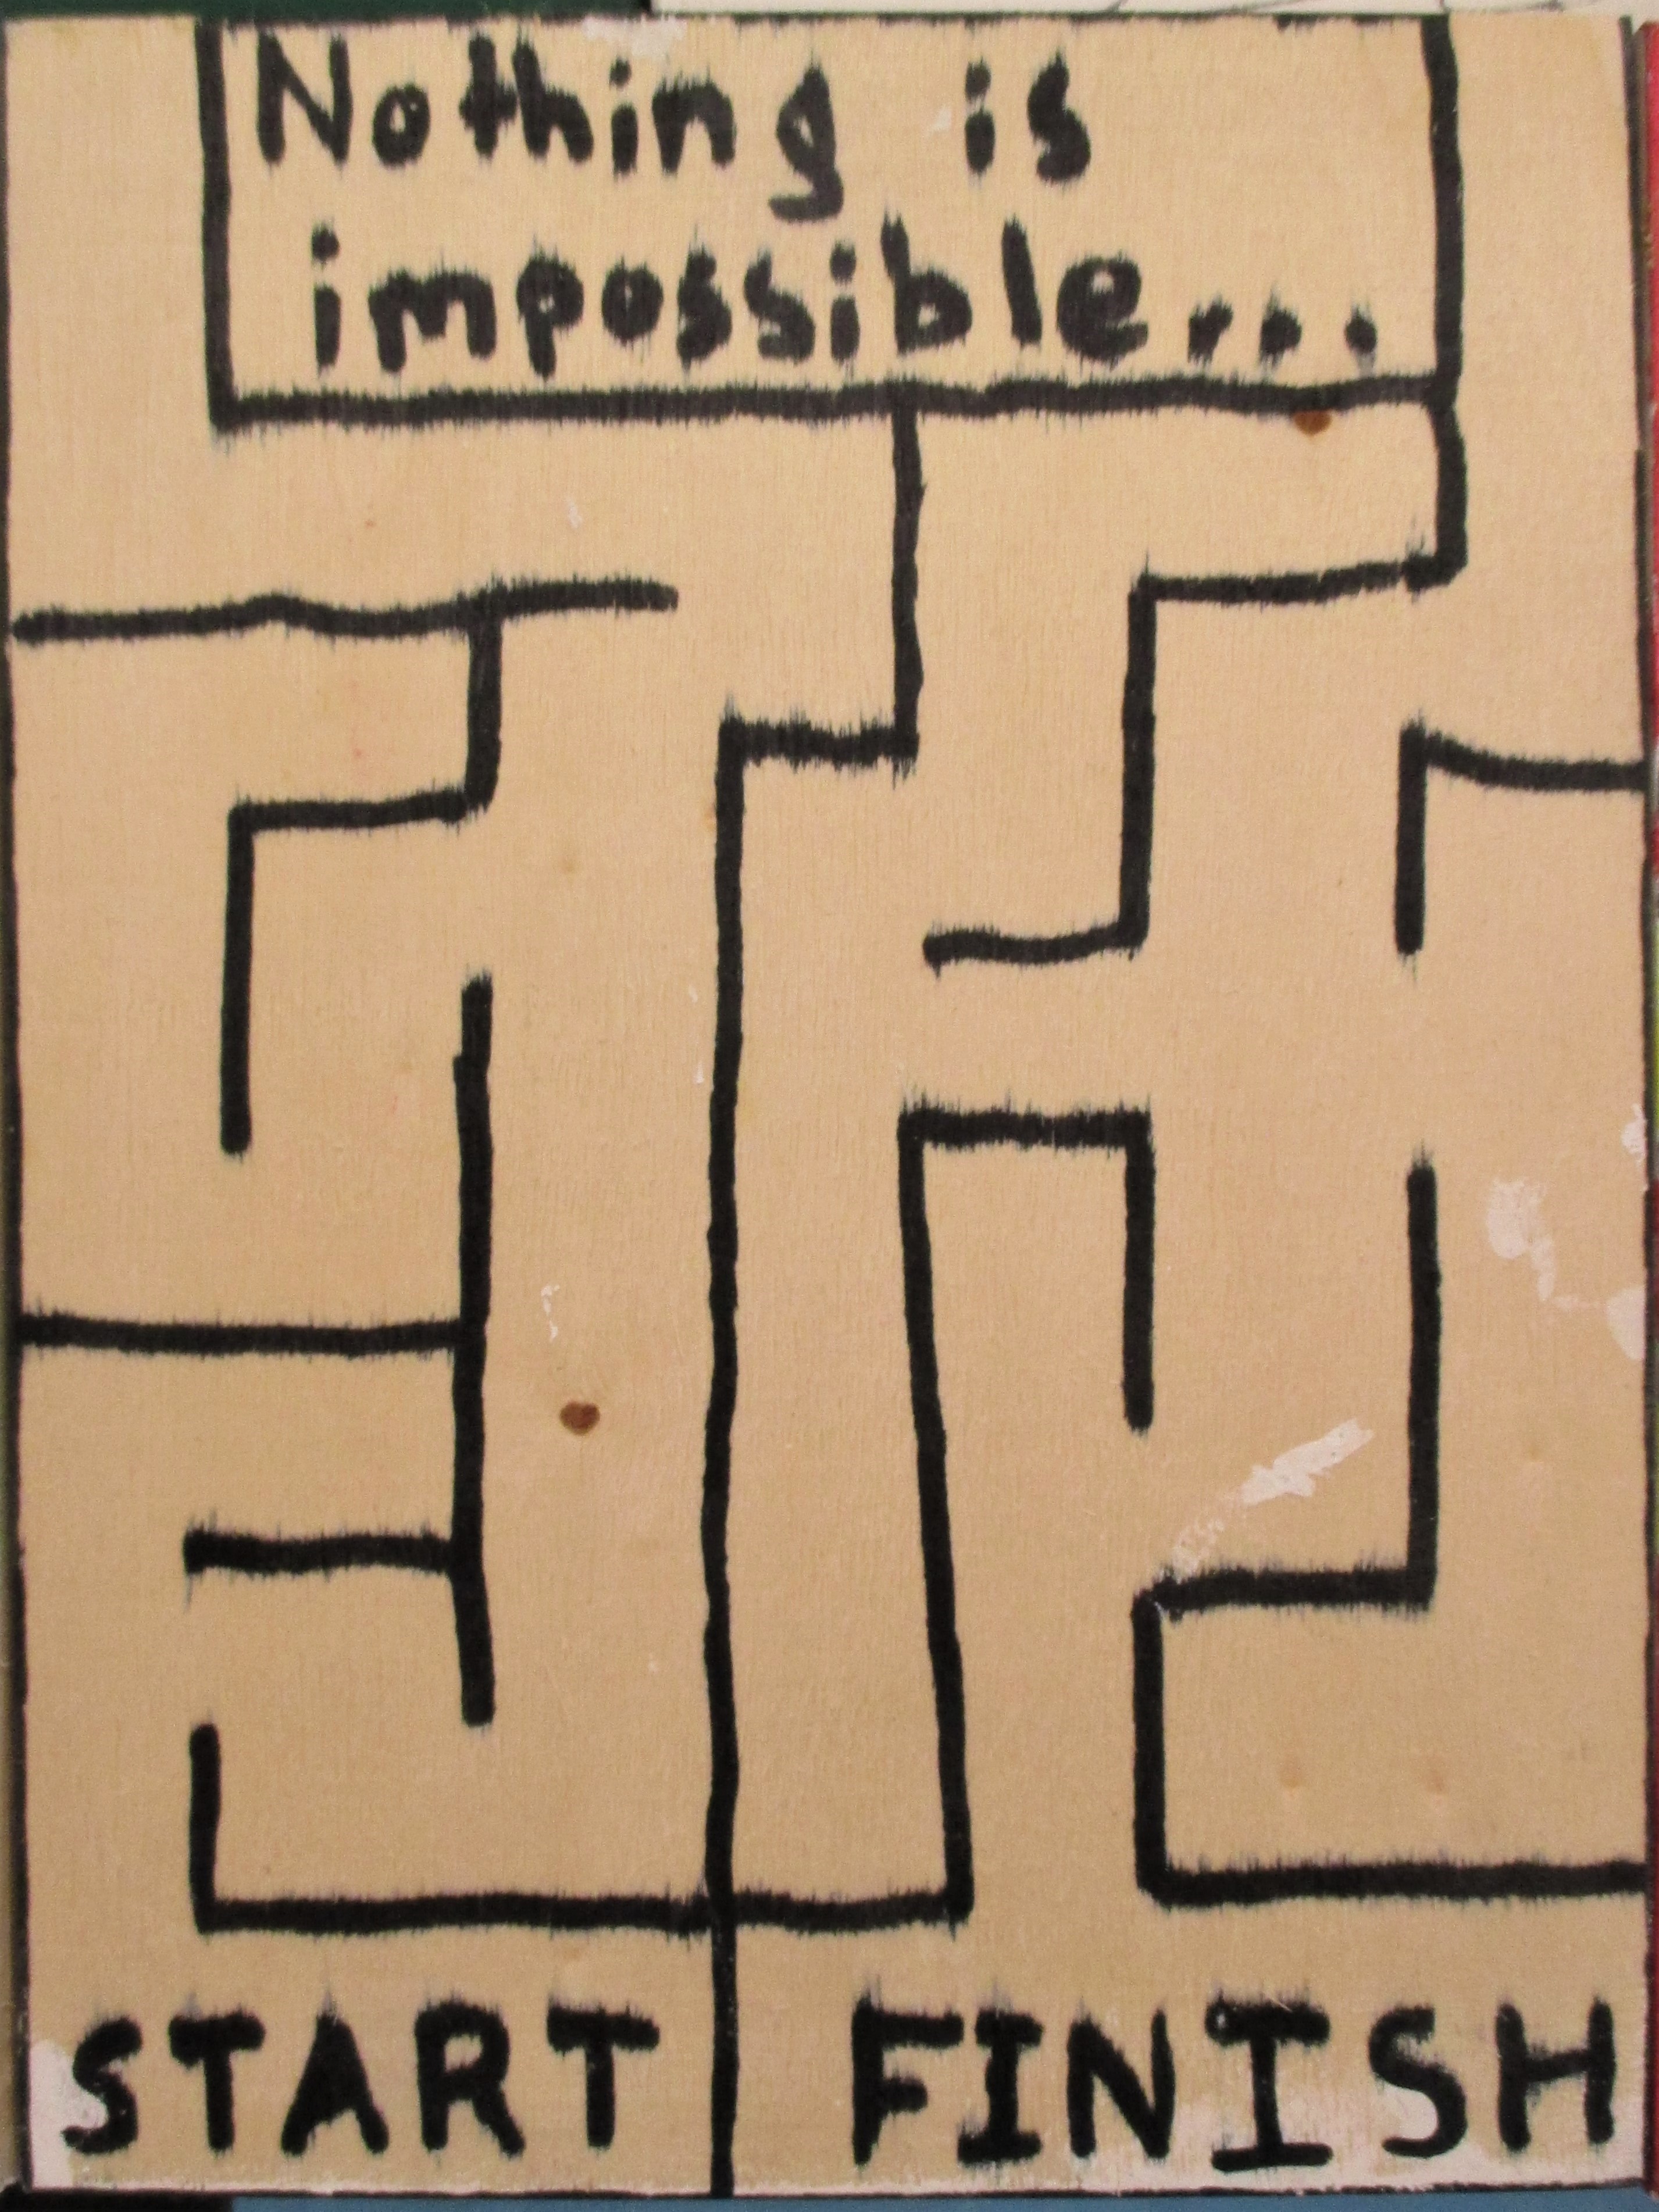 Nothing is
impossible...
START FINISH